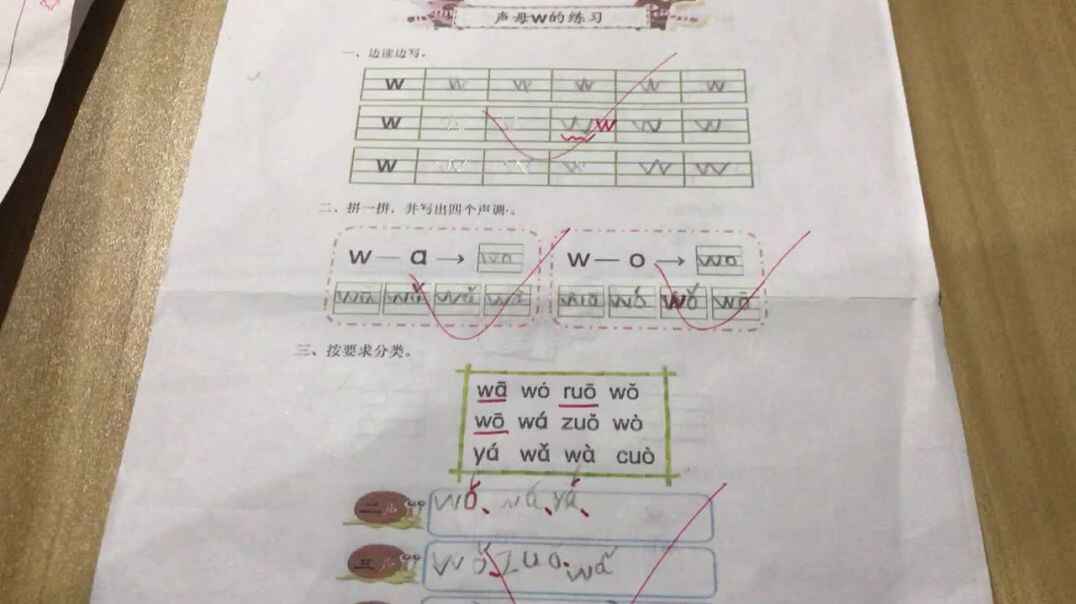 声母w的练习
一、边读边写。
w w w w w w
w w w w w w w
w w w w w w
二、拼一拼，并写出四个声调。
w — a → wa w — o → wo
wā wá wǎ wà wō wó wǒ wò
三、按要求分类。
wā wó ruō wǒ
wō wá zuǒ wò
yá wǎ wà cuò
二 wó、wá、yá、
三 wǒ、zuǒ、wǎ